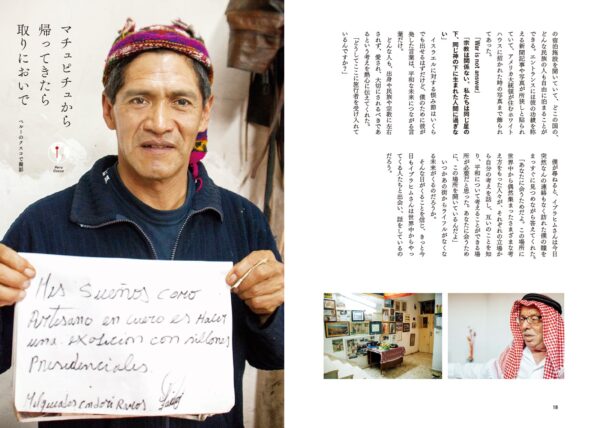 の宿泊施設を開いていて、どこの国の、
どんな民族の人も自由に泊まることが
できる。エントランスには彼の功績を称
える新聞記事や写真が所狭しと貼られ
ていて、アメリカ大統領が住むホワイト
ハウスに招かれた時の写真まで飾られ
てあった。
「War is not answer!
「宗教は関係ない、私たちは同じ星の
下、同じ神の下に生まれた人間に過ぎな
い」
イスラエルに対する恨み節はいくら
でも出せるはずだけど、僕のために彼が
発した言葉は、平和な未来につながる言
葉だけ。
どんな人も、出身や民族や宗教に左右
されず、愛され、大切にされるべきであ
るという考えを熱心に伝えてくれた。
「どうしてここに旅行者を受け入れて
いるんですか？」
僕が尋ねると、イブラヒムさんは今日
突然なんの連絡もなく訪れた僕の瞳を
まっすぐに見つめながら答えてくれた。
「あなたに会うためだよ。この場所に
世界中から偶然集まったさまざまな考
え方をもった人々が、それぞれの立場か
ら自分の考えを話し、互いのことを知
り、平和について考えることができる場
所が必要だと思った。あなたに会うため
に、この場所を開いているんだよ」
いつかあの街からライフルがなくな
る未来がくるのだろうか。
そんな日がくることを信じ、きっと今
日もイブラヒムさんは世界中からやっ
てくる人たちと出会い、話をしているの
だろう。
18
マチュピチュから
帰ってきたら
取りにおいで
ペルーのクスコで撮影
Mis Sueños como
Artesano en cuero es Hacer
una exoticion con sillones
Presidenciales
Melquiades condori Ramos